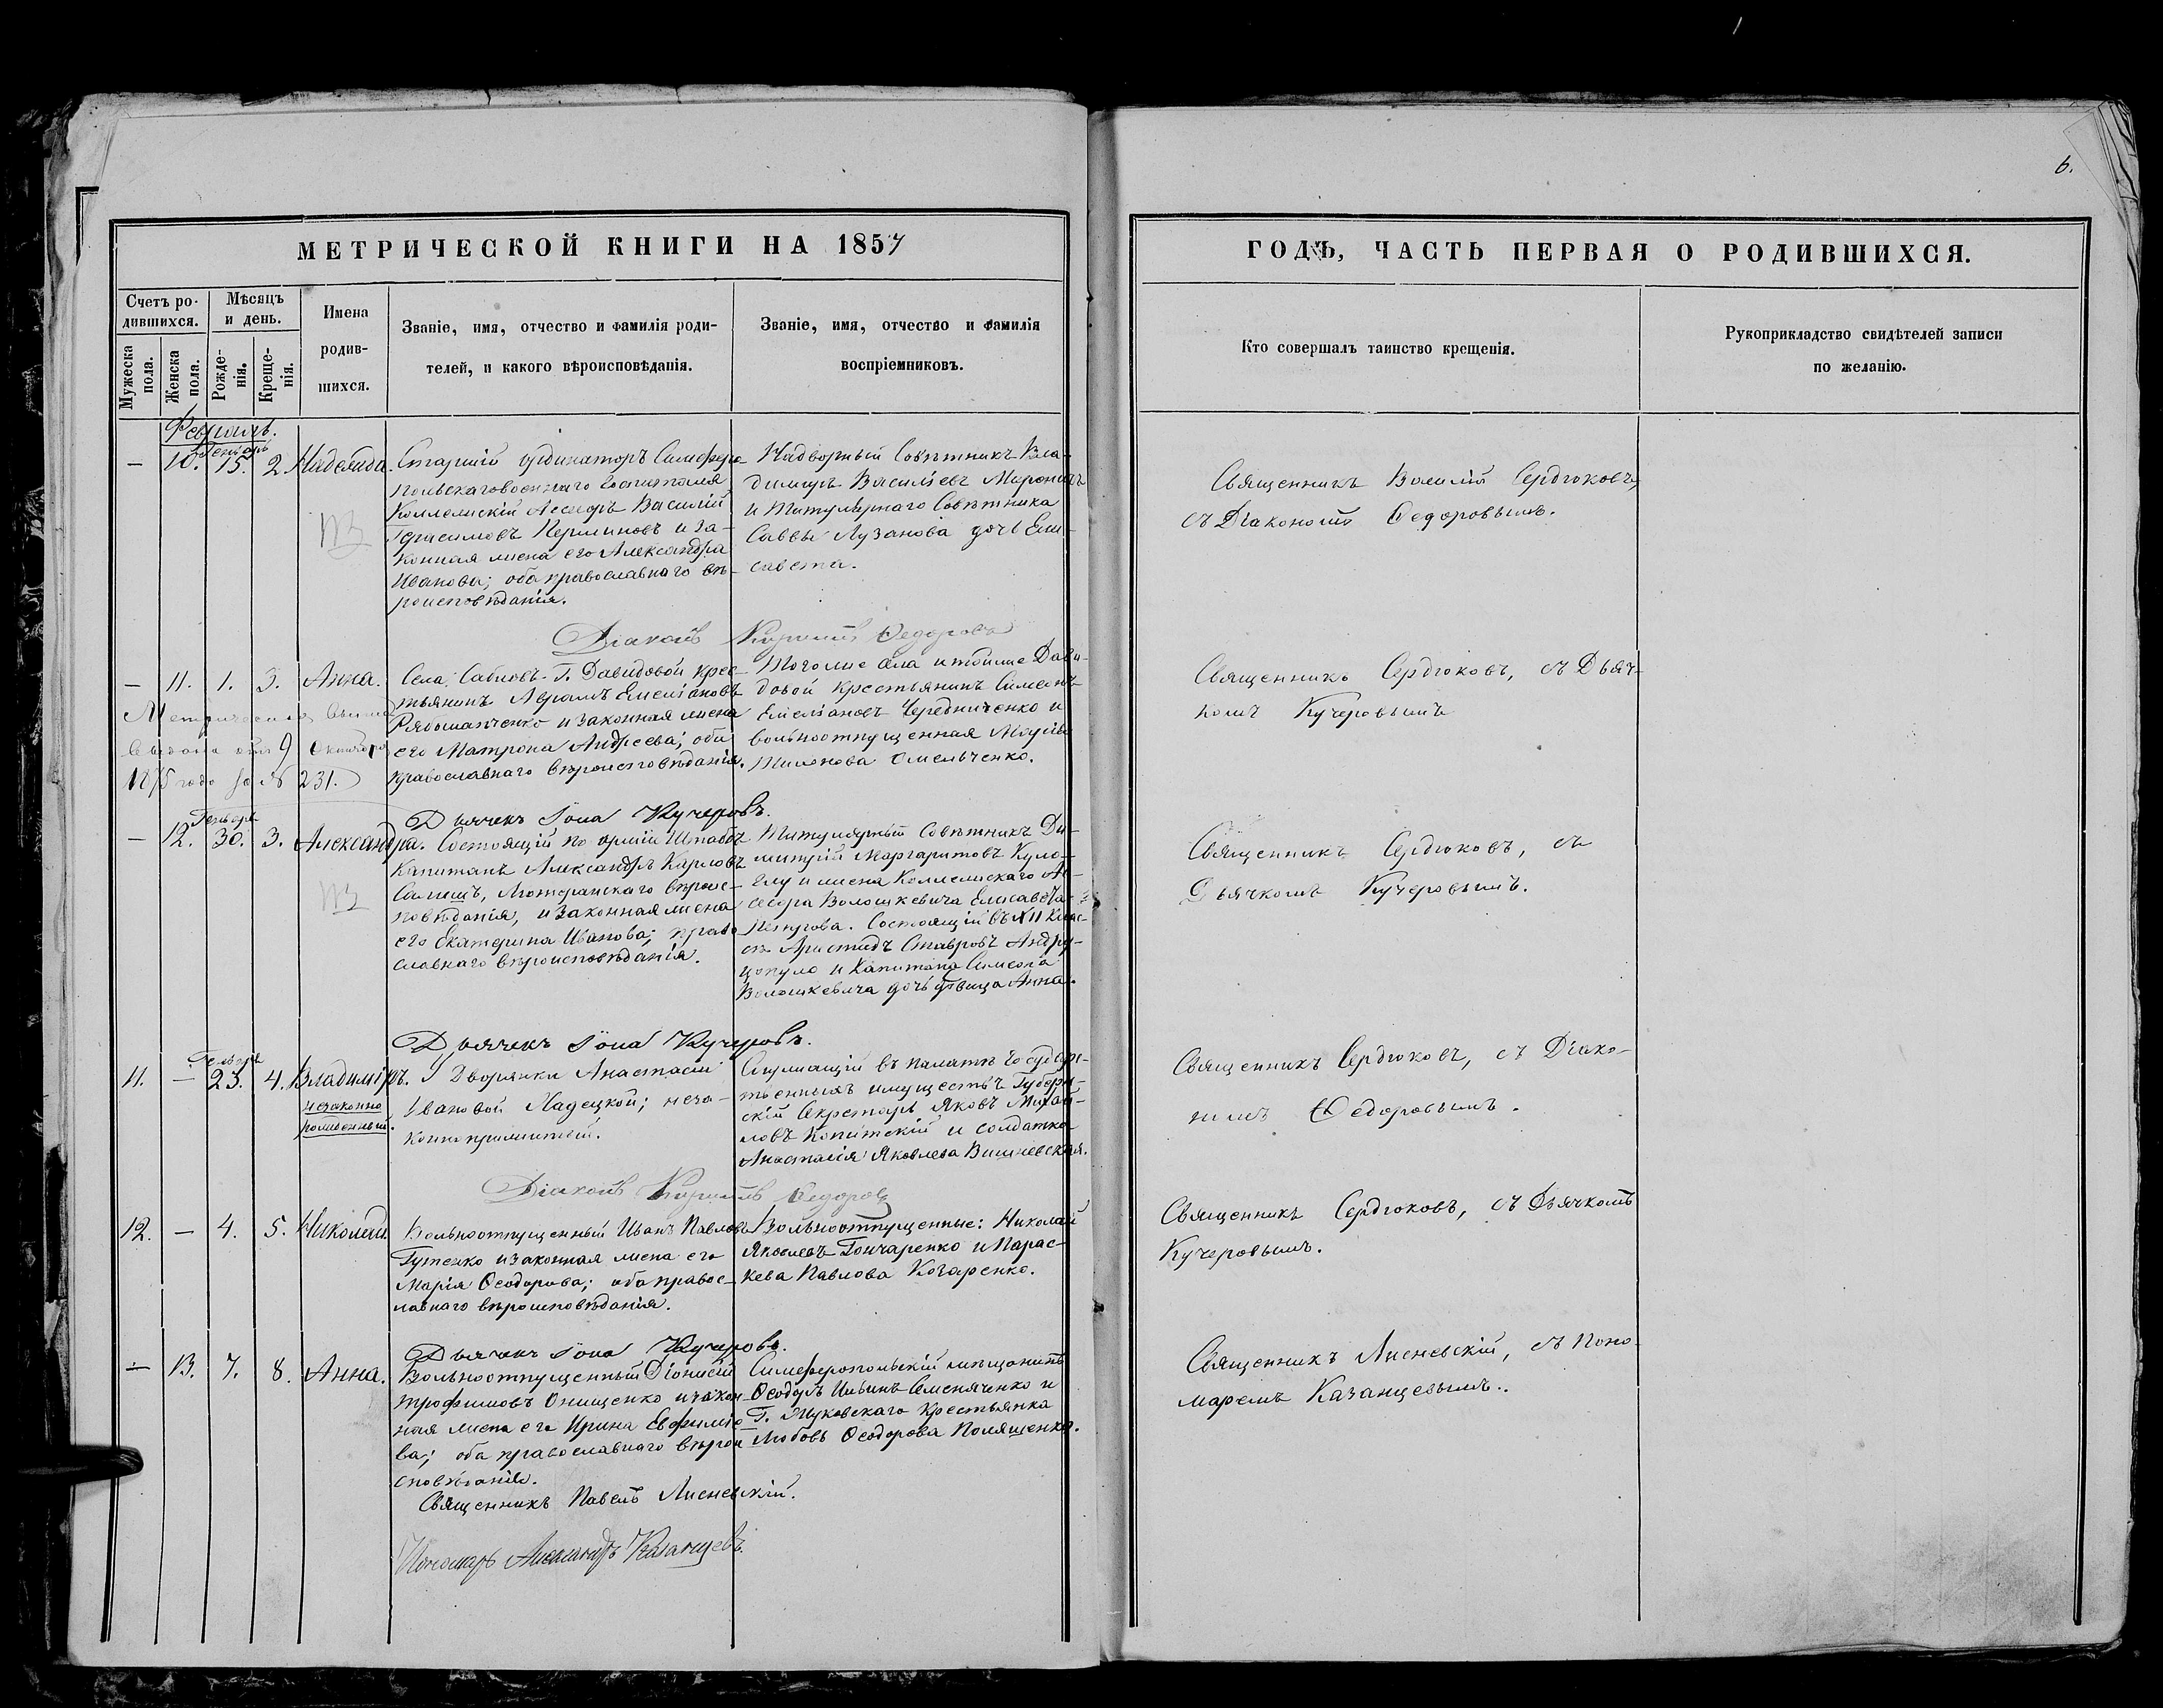 6.
МЕТРИЧЕСКОЙ КНИГИ НА 1857
ГОДЪ, ЧАСТЬ ПЕРВАЯ О РОДИВШИХСЯ.
Счетъ ро-
дившихся.
Мужеска
пола.
Женска
пола.
Мѣсяцъ
и день.
Рожде-
нія.
Креще-
нія.
Имена
родив-
шихся.
Званіе, имя, отчество и фамилія роди-
телей, и какого вѣроисповѣданія.
Званіе, имя, отчество и фамилія
воспріемниковъ.
Кто совершалъ таинство крещенія.
Рукоприкладство свидѣтелей записи
по желанію.
Февраль.
Генваря
— 10. 15. 2. Надежда.
Старшій ординаторъ Симферо-
польскаго военнаго госпиталя
Коллежскій Ассесоръ Василій
Герасимовъ и за-
конная жена его Александра
Иванова; оба православнаго вѣ-
роисповѣданія.
Надворный Совѣтникъ Вла-
димиръ Василіевъ Миронычъ
и Титулярнаго Совѣтника
Саввы Лузанова дочь Ели-
савета.
Священникъ Василій Сердюковъ,
съ Діакономъ Федоровымъ.
Діаконъ Кириллъ Федоровъ
— 11. 1. 3. Анна.
Села Сабловъ Г. Давидовой крес-
тьянинъ Аврамъ Емеліановъ
Рябошапченко и законная жена
его Матрона Андреева; оба
православнаго вѣроисповѣданія.
Тогоже села и тойже Дави-
довой крестьянинъ Симеонъ
Емеліановъ Чередниченко и
вольноотпущенная Марія
Омельченко.
Священникъ Сердюковъ, съ Дьяч-
комъ Кучеровымъ
Метрическая
9 Октября
1875 года за № 231.
Дьячекъ Іона Кучеровъ.
Генваря
— 12. 30. 3. Александра.
Состоящій по арміи Штабсъ
Капитанъ Александръ Карловъ
Лютеранскаго вѣроис-
повѣданія, и законная жена
его Екатерина Иванова; право
славнаго вѣроисповѣданія.
Титулярный Совѣтникъ Ди-
митрій Маргаритовъ Куло-
Елу и жена Коллежскаго Ас-
сесора Волошкевича Елисавета
Петрова. Состоящій въ XII Клас-
сѣ Аристидъ Ставровъ Андру-
цопуло и Капитана Симеона
Волошкевича дочь дѣвица Анна.
Священникъ Сердюковъ, съ
Дьячкомъ Кучеровымъ.
Дьячекъ Іона Кучеровъ.
Генваря
11. — 23. 4. Владиміръ.
незаконно
рожденный.
У Дворянки Анастасіи
Ивановой Ладецкой; неза-
конноприжитой.
Служащій въ палатѣ Государс-
твенныхъ имуществъ Губерн-
скій Секретарь Яковъ Михай-
ловъ Копитскій и солдатка
Анастасія Яковлева Вишневская.
Священникъ Сердюковъ, съ Діако-
номъ Федоровымъ.
Діаконъ Кириллъ Федоровъ
12. — 4. 5. Николай.
Вольноотпущенный Иванъ Павловъ
Гутенко и законная жена его
Марія Ѳеодорова; оба правос-
лавнаго вѣроисповѣданія.
Вольноотпущенные: Николай
Яковлевъ Гончаренко и Парас-
кева Павлова Кочаренко.
Священникъ Сердюковъ, съ Дьячкомъ
Кучеровымъ.
Дьячекъ Іона Кучеровъ.
— 13. 7. 8. Анна.
Вольноотпущенный Діонисій
Трофимовъ Онищенко и закон
ная жена его Ирина Евфиміо-
ва; оба православнаго вѣрои
сповѣданія.
Симферопольскій мѣщанинъ
Ѳеодоръ Ильинъ Семеняченко и
Г. Жуковскаго крестьянка
Любовь Ѳеодорова Полященко.
Священникъ Лисневскій, съ Поно-
маремъ Казанцевымъ.
Священникъ Павелъ Лисневскій.
Пономарь Александръ Казанцевъ.